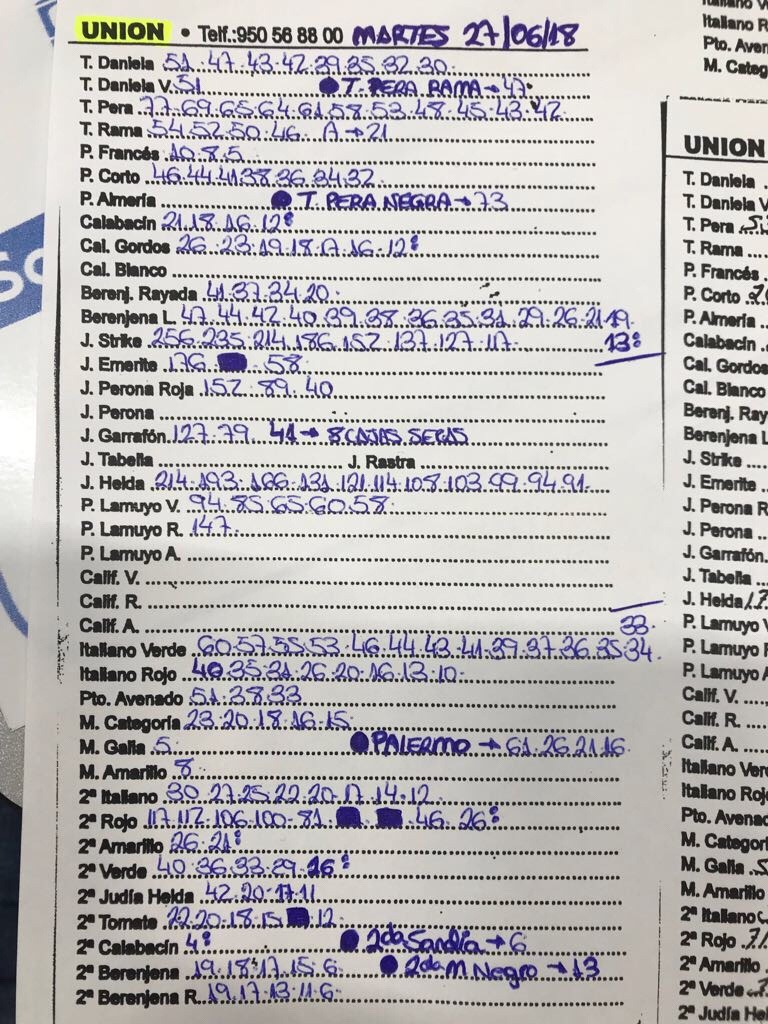 UNION • Telf.:950 56 88 00 MARTES 27/06/18
T. Daniela 51.47.43.42.39.35.32.30.
T. Daniela V. 51 ● T. PERA RAMA → 47
T. Pera 77.69.65.64.61.58.53.48.45.43.42
T. Rama 54.52.50.46. A → 21
P. Francés 10.8.5
P. Corto 46.44.41.38.36.34.32
P. Almería ● T. PERA NEGRA → 73
Calabacín 21.18.16.12º
Cal. Gordos 26.23.19.18.17.16.12º
Cal. Blanco
Berenj. Rayada 41.37.34.20.
Berenjena L. 47.44.42.40.39.38.36.35.31.29.26.21.19.
13º
J. Strike 256.235.214.186.152.137.127.117
J. Emerite 176. 58
J. Perona Roja 152.89.40
J. Perona
J. Garrafón 127.79. 41 → 8 CAJAS SECAS
J. Tabella J. Rastra
J. Helda 214.193.166.131.121.114.108.103.99.94.91.
P. Lamuyo V. 94.85.65.60.58
P. Lamuyo R. 147
P. Lamuyo A.
Calif. V.
Calif. R.
Calif. A.
33
Italiano Verde 60.57.55.53.46.44.43.41.39.37.36.35.34.
Italiano Rojo 40.35.31.26.20.16.13.10
Pto. Avenado 51.38.33
M. Categoría 23.20.18.16.15
M. Galia 5 ● PALERMO → 61.26.21.16
M. Amarillo 8
2ª Italiano 30.27.25.22.20.17.14.12
2ª Rojo 117.112.106.100-81. 46.26º
2ª Amarillo 26.21º
2ª Verde 40.36.33.29.26º
2ª Judía Helda 42.20.17.11
2ª Tomate 22.20.18.15 12
2ª Calabacín 4º ● 2da Sandía → 6
2ª Berenjena 19.18.17.15.6 ● 2da M Negro → 13
2ª Berenjena R. 19.17.13.11.6
Italiano R
Pto. Aven
M. Categ
UNION
T. Daniela
T. Daniela V
T. Pera
T. Rama
P. Francés
P. Corto
P. Almería
Calabacín
Cal. Gordos
Cal. Blanco
Berenj. Ray
Berenjena L
J. Strike
J. Emerite
J. Perona R
J. Perona
J. Garrafón
J. Tabella
J. Helda
P. Lamuyo V
P. Lamuyo R
P. Lamuyo A
Calif. V.
Calif. R.
Calif. A.
Italiano Verd
Italiano Rojo
Pto. Avenad
M. Categorí
M. Galia
M. Amarillo
2ª Italiano
2ª Rojo
2ª Amarillo
2ª Verde
2ª Judía Hel